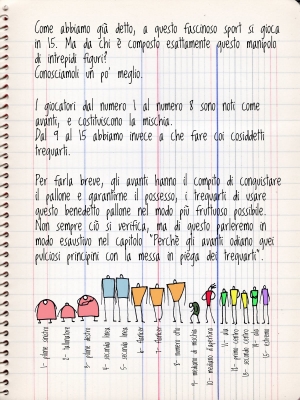 Come abbiamo già detto, a questo fascinoso sport si gioca
in 15. Ma da chi è composto esattamente questo manipolo
di intrepidi figuri?
Conosciamoli un po' meglio.
I giocatori dal numero 1 al numero 8 sono noti come
avanti, e costituiscono la mischia.
Dal 9 al 15 abbiamo invece a che fare coi cosiddetti
trequarti.
Per farla breve, gli avanti hanno il compito di conquistare
il pallone e garantirne il possesso, i trequarti di usare
questo benedetto pallone nel modo più fruttuoso possibile.
Non sempre ciò si verifica, ma di questo parleremo in
modo esaustivo nel capitolo "Perchè gli avanti odiano quei
pulciosi principini con la messa in piega dei trequarti".
1- pilone sinistro
2- tallonatore
3- pilone destro
4- seconda linea
5- seconda linea
6- flanker
7- flanker
8- numero otto
9- mediano di mischia
10- mediano d'apertura
11- ala
12- primo centro
13- secondo centro
14- ala
15- estremo